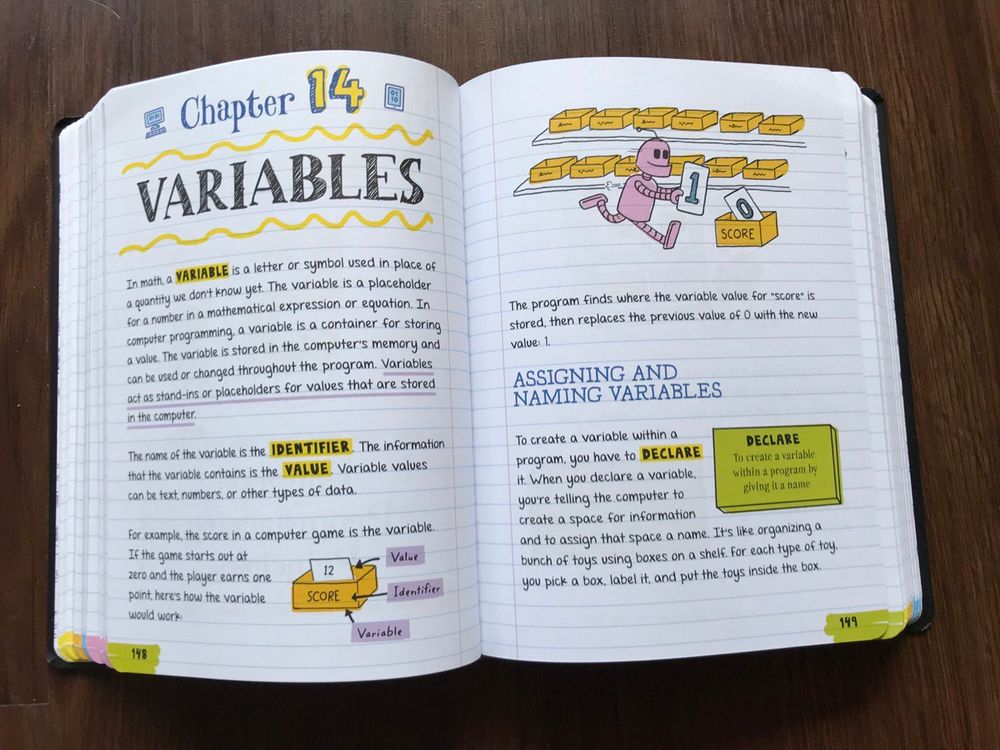 Chapter 14
VARIABLES
In math, a VARIABLE is a letter or symbol used in place of
a quantity we don't know yet. The variable is a placeholder
for a number in a mathematical expression or equation. In
computer programming, a variable is a container for storing
a value. The variable is stored in the computer's memory and
can be used or changed throughout the program. Variables
act as stand-ins or placeholders for values that are stored
in the computer.
The name of the variable is the IDENTIFIER. The information
that the variable contains is the VALUE. Variable values
can be text, numbers, or other types of data.
For example, the score in a computer game is the variable.
If the game starts out at
zero and the player earns one
point, here's how the variable
would work:
12
SCORE
Value
Identifier
Variable
148
1
0
SCORE
The program finds where the variable value for "score" is
stored, then replaces the previous value of 0 with the new
value: 1.
ASSIGNING AND
NAMING VARIABLES
To create a variable within a
program, you have to DECLARE
it. When you declare a variable,
you're telling the computer to
create a space for information
and to assign that space a name. It's like organizing a
bunch of toys using boxes on a shelf. For each type of toy,
you pick a box, label it, and put the toys inside the box.
DECLARE
To create a variable
within a program by
giving it a name
149